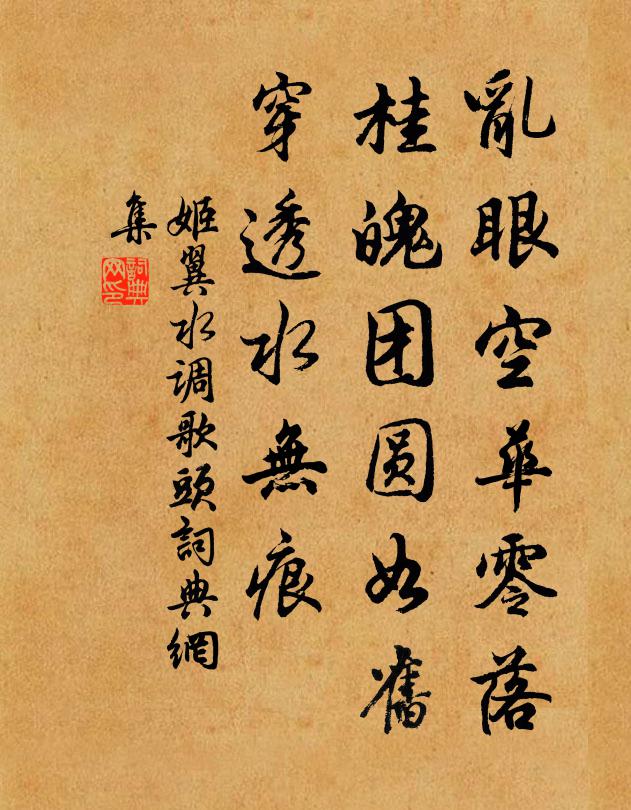 亂眼空華零落
桂魄团圆如舊
穿透水無痕
姬翼水调歌頭詞典網
集
詞典
网印